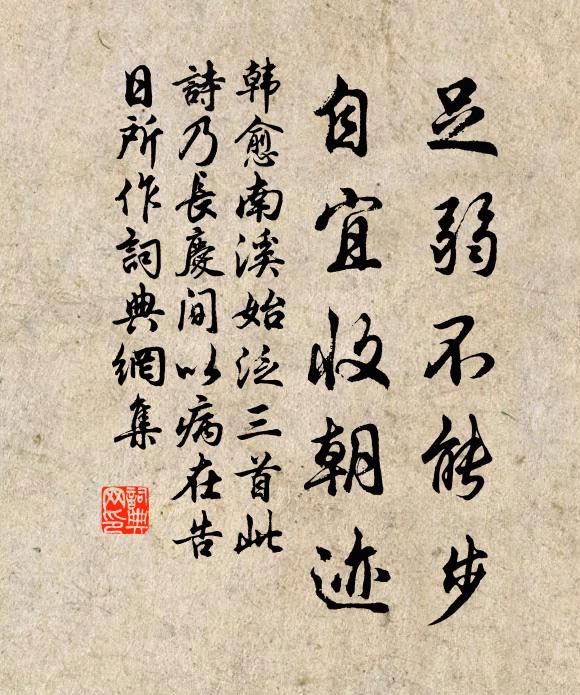 足弱不能步
自宜收朝迹
韩愈南溪始泛三首此
詩乃長慶间以病在告
日所作詞典網集
詞典
网印